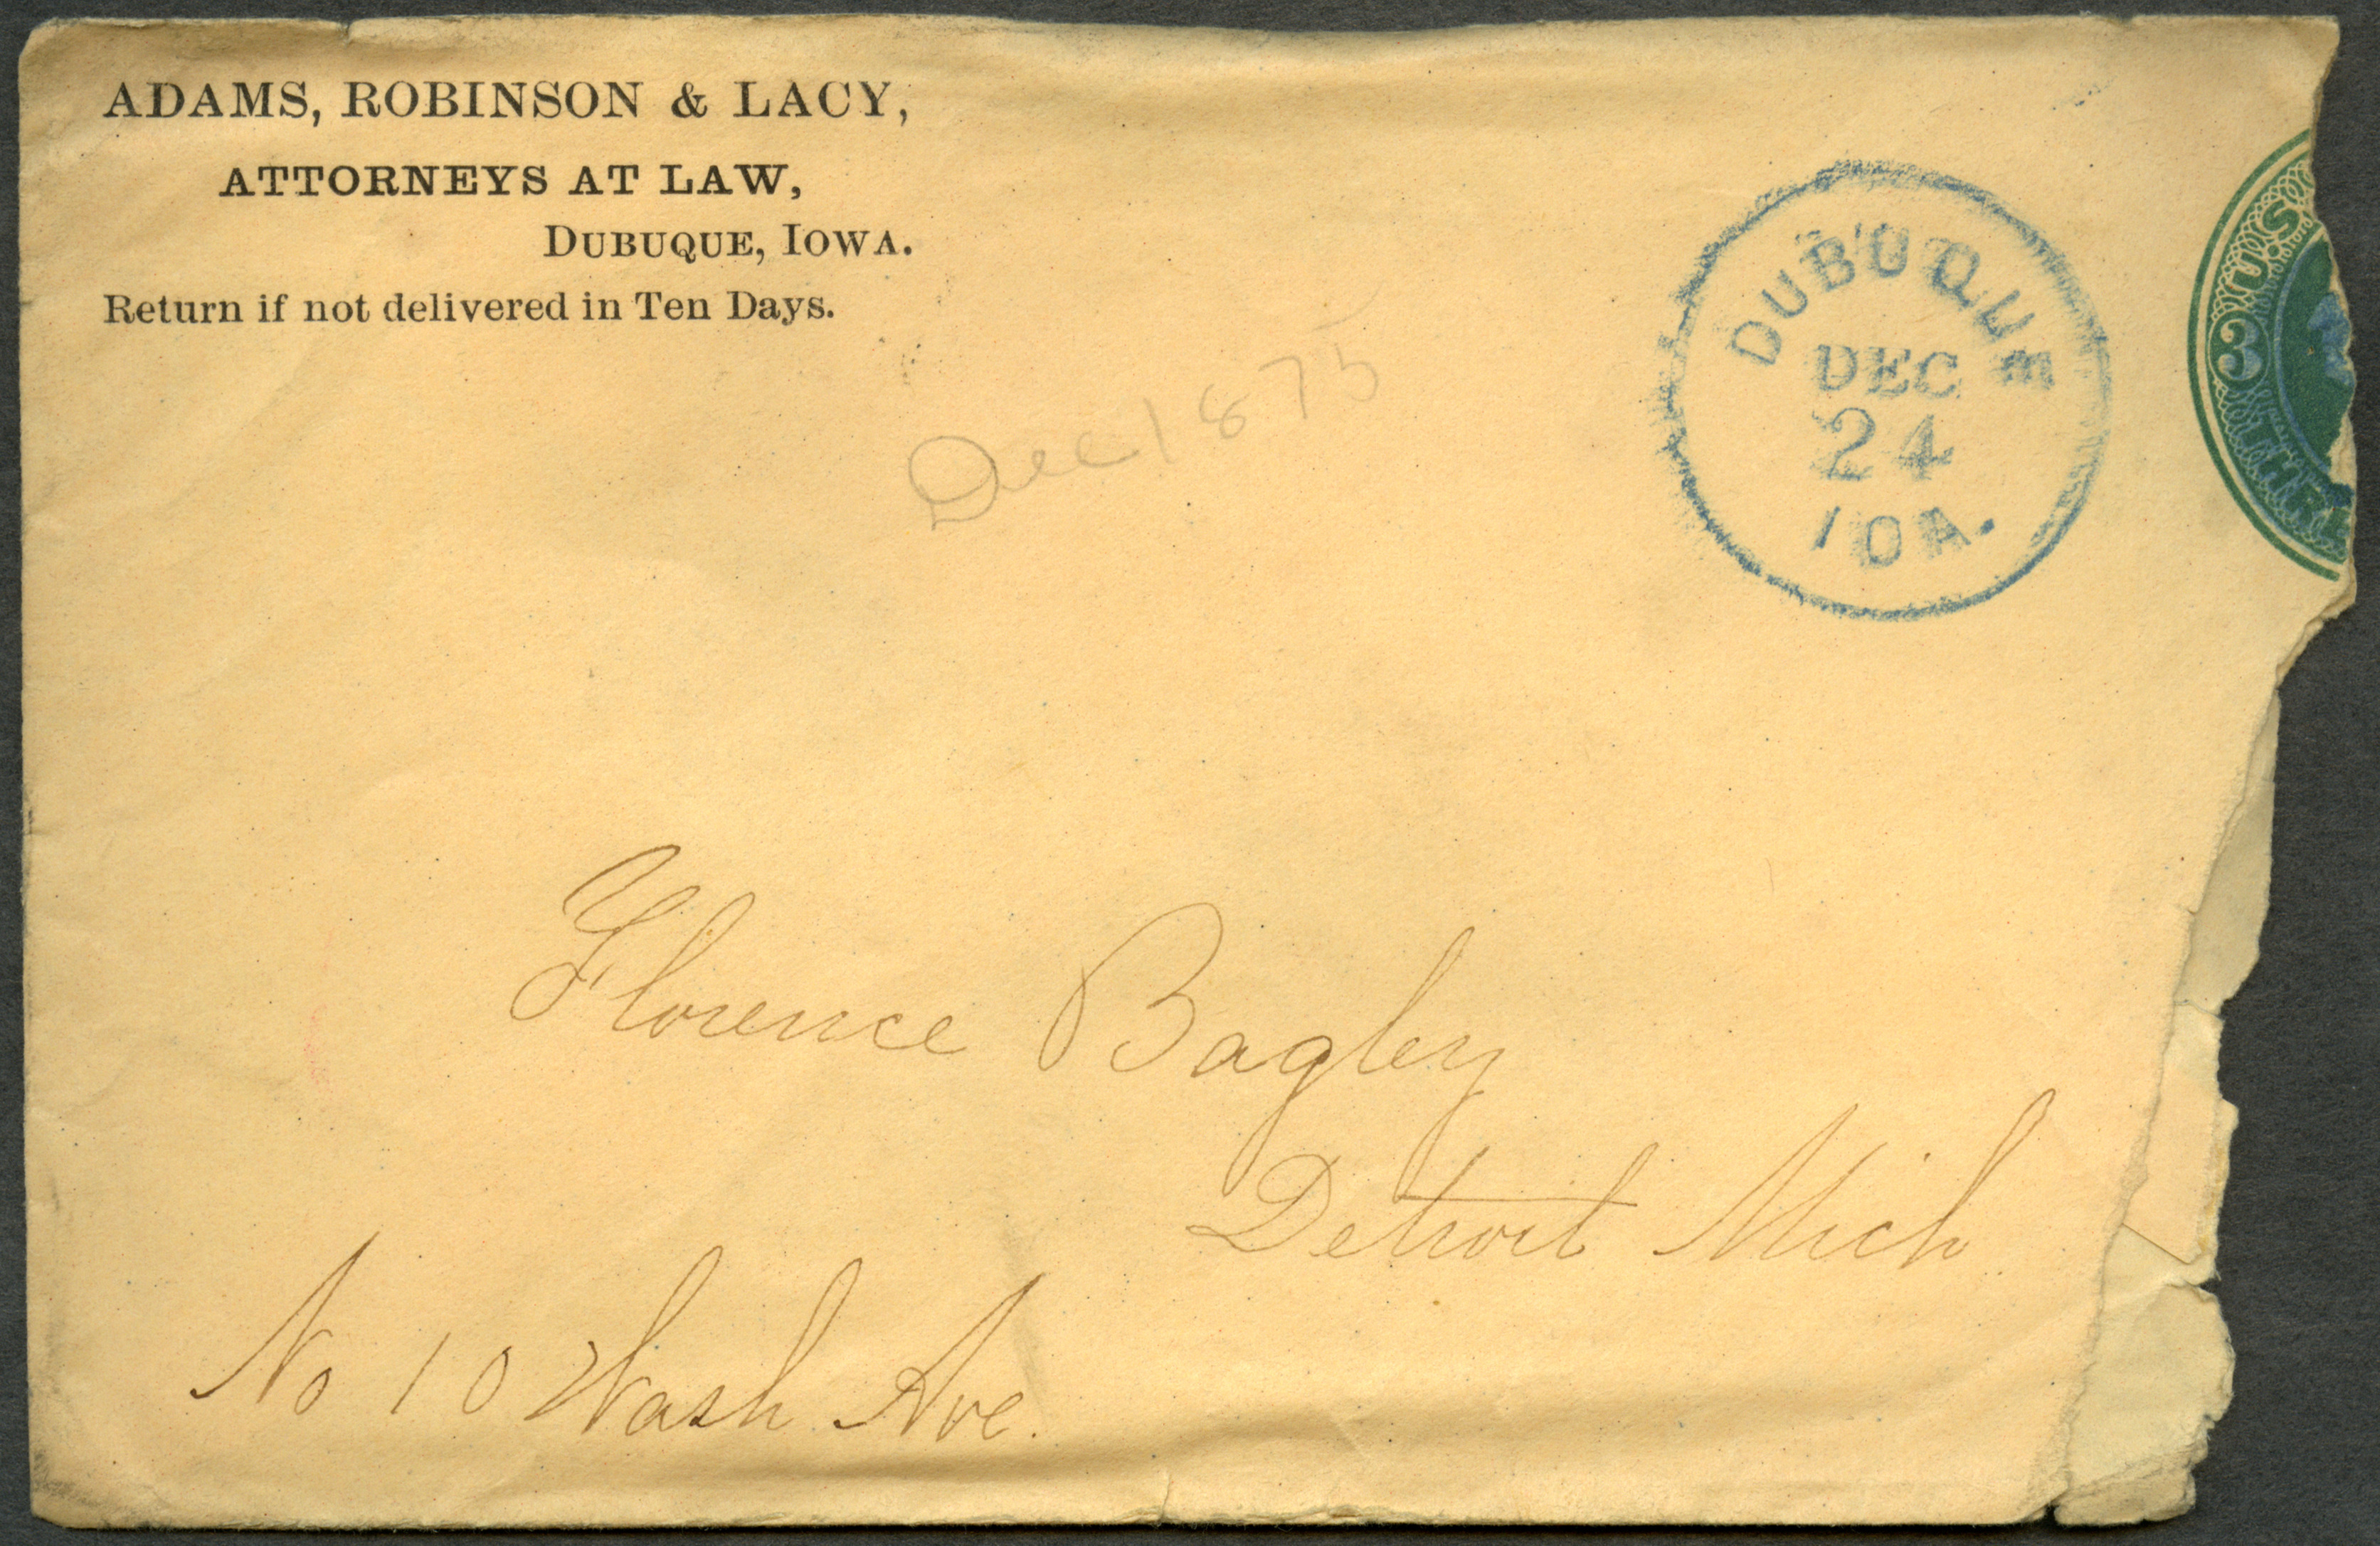 ADAMS, ROBINSON & LACY,
ATTORNEYS AT LAW,
DUBUQUE, IOWA.
Return if not delivered in Ten Days.
Dec 1875
DUBUQUE
DEC
24
IOA.
U.S.
3
THRE
Florence Bagley
Detroit Mich
No 10 Wash Ave.